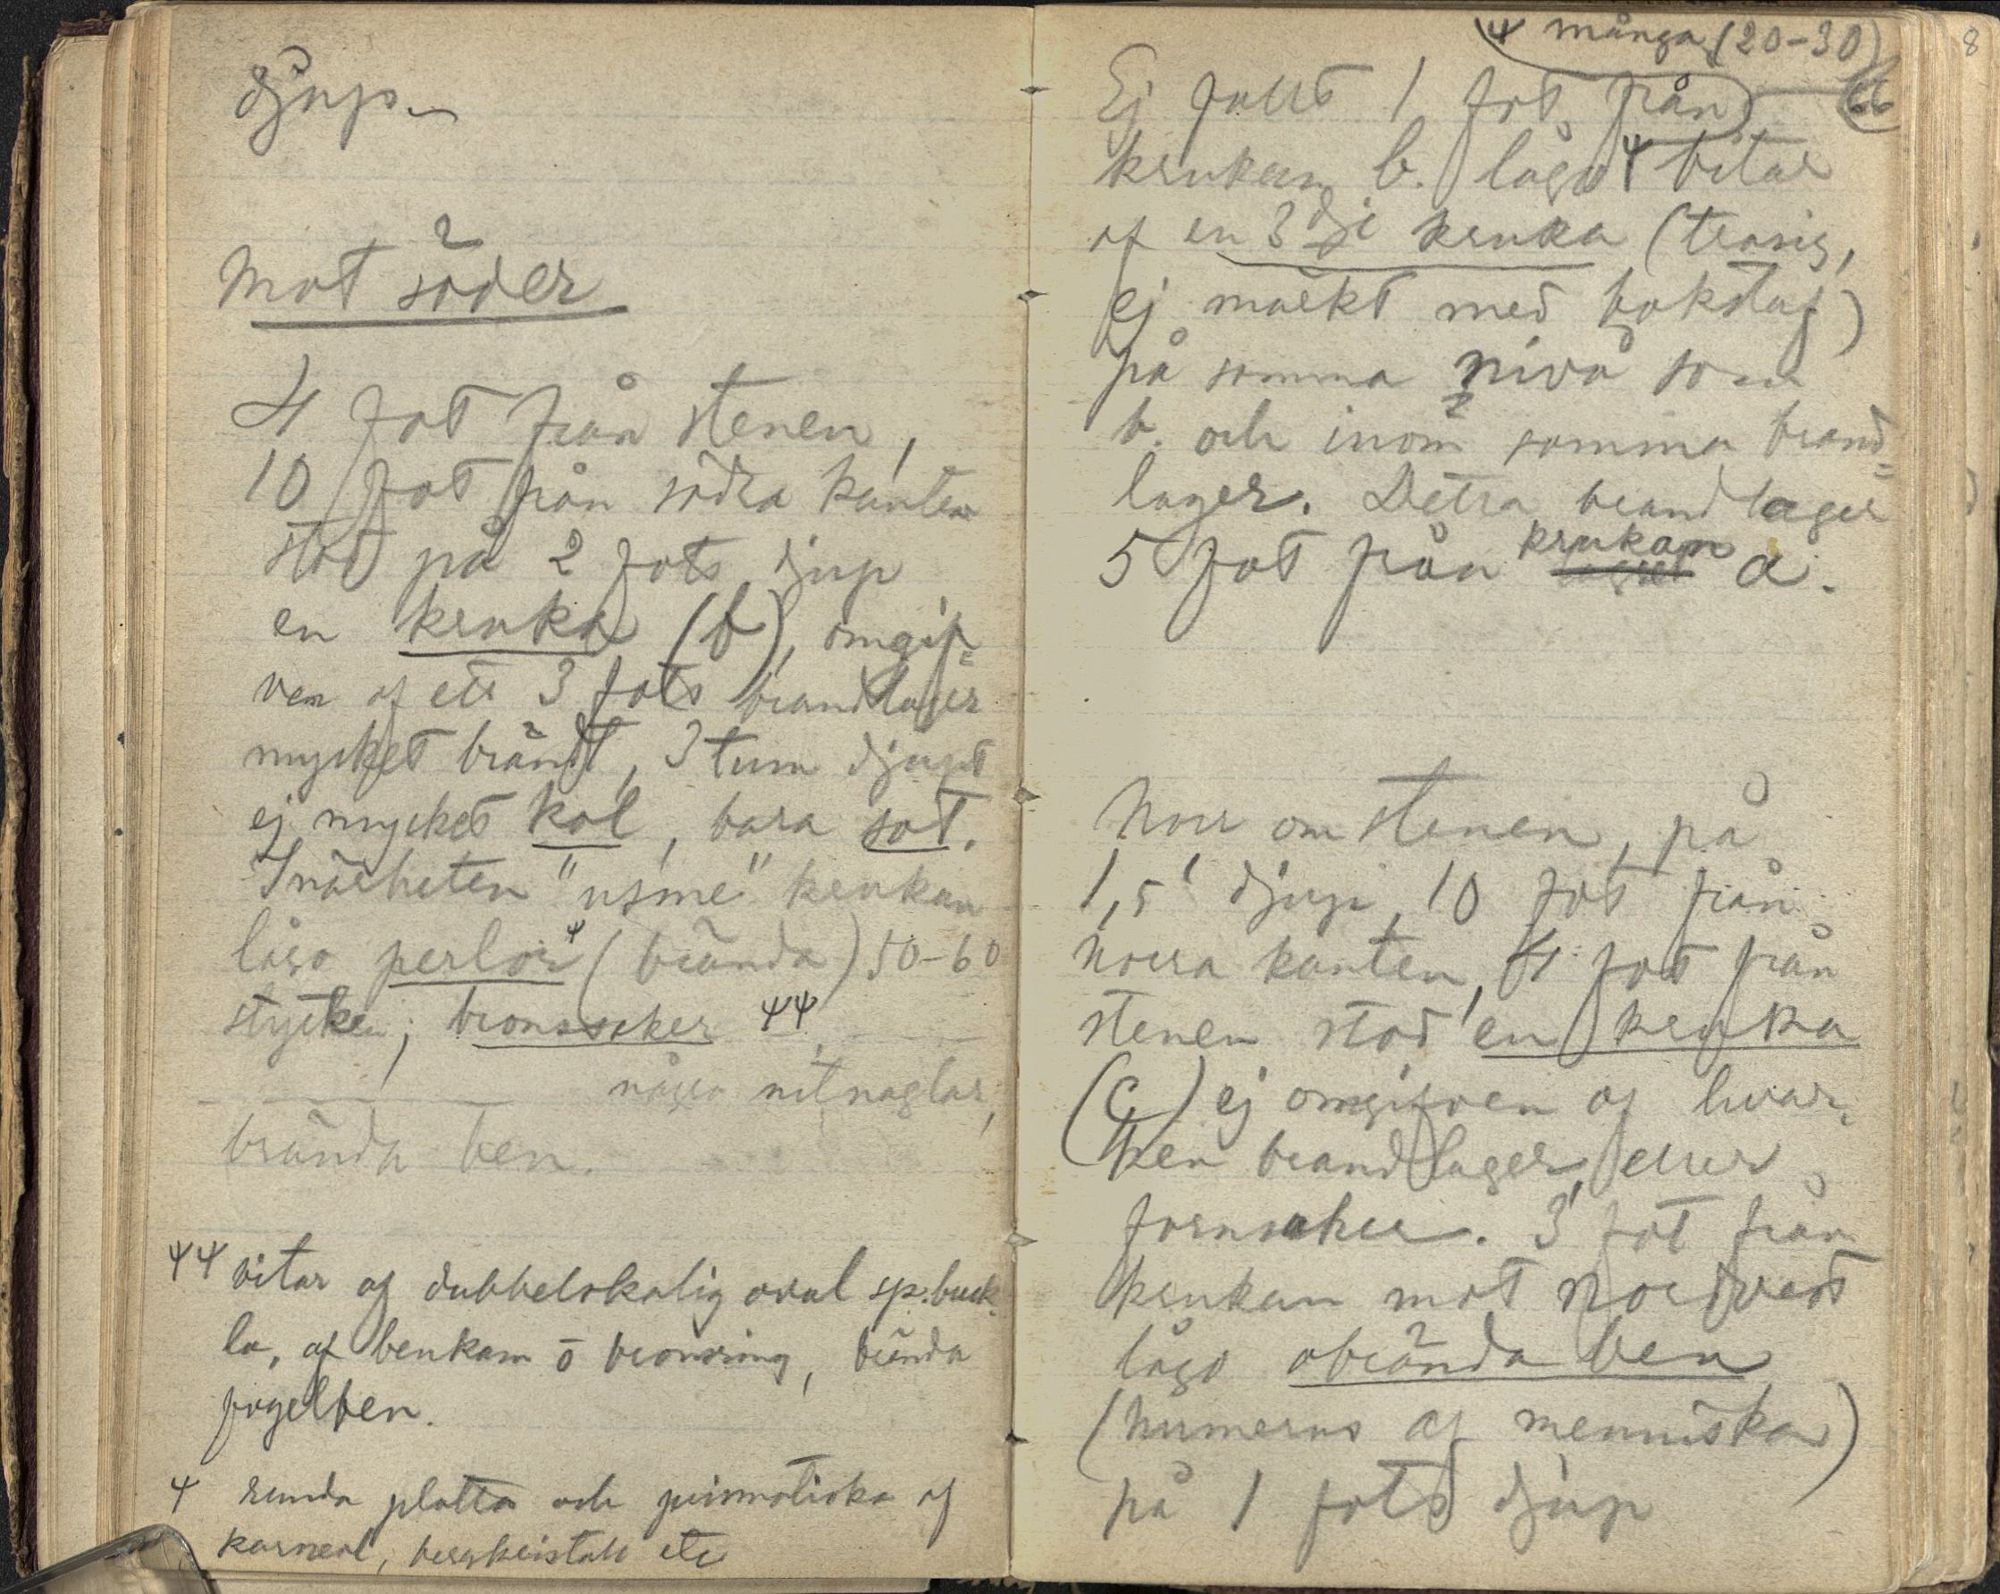 djup.
Mot söder
4 fot från stenen,
10 fot från södra kanten
stod på 2 fots djup
en kruka (b), omgif-
ven af ett 3 fots brandlager
mycket brändt, 3 tum djupt
ej mycket kol, bara sot.
I närheten krukan
lågo perlor ψ (brända) 50-60
stycken; bronssaker ψψ,
några nitnaglar,
brända ben.
ψψ bitar af dubbelskalig oval sp.buck-
la, af benkam o bronsring, brända
fogelben.
ψ runda platta och prismatiska af
karneol, bergkristall etc
ψ många (20-30)
66
8
Ej fullt 1 fot från
krukan b. lågo ψ bitar
af en 3dje kruka (trasig,
ej märkt med bokstaf)
på samma nivå som
b. och inom samma brand-
lager. Detta brandlager
5 fot från krukan a.
Norr om stenen, på
1,5' djup, 10 fot från
norra kanten, 4 fot från
stenen stod en kruka
(c) ej omgifven af hvar-
ken brandlager eller
fornsaker. 3 fot från
krukan mot Nordvest
lågo obrända ben
(humerus af menniska)
på 1 fots djup